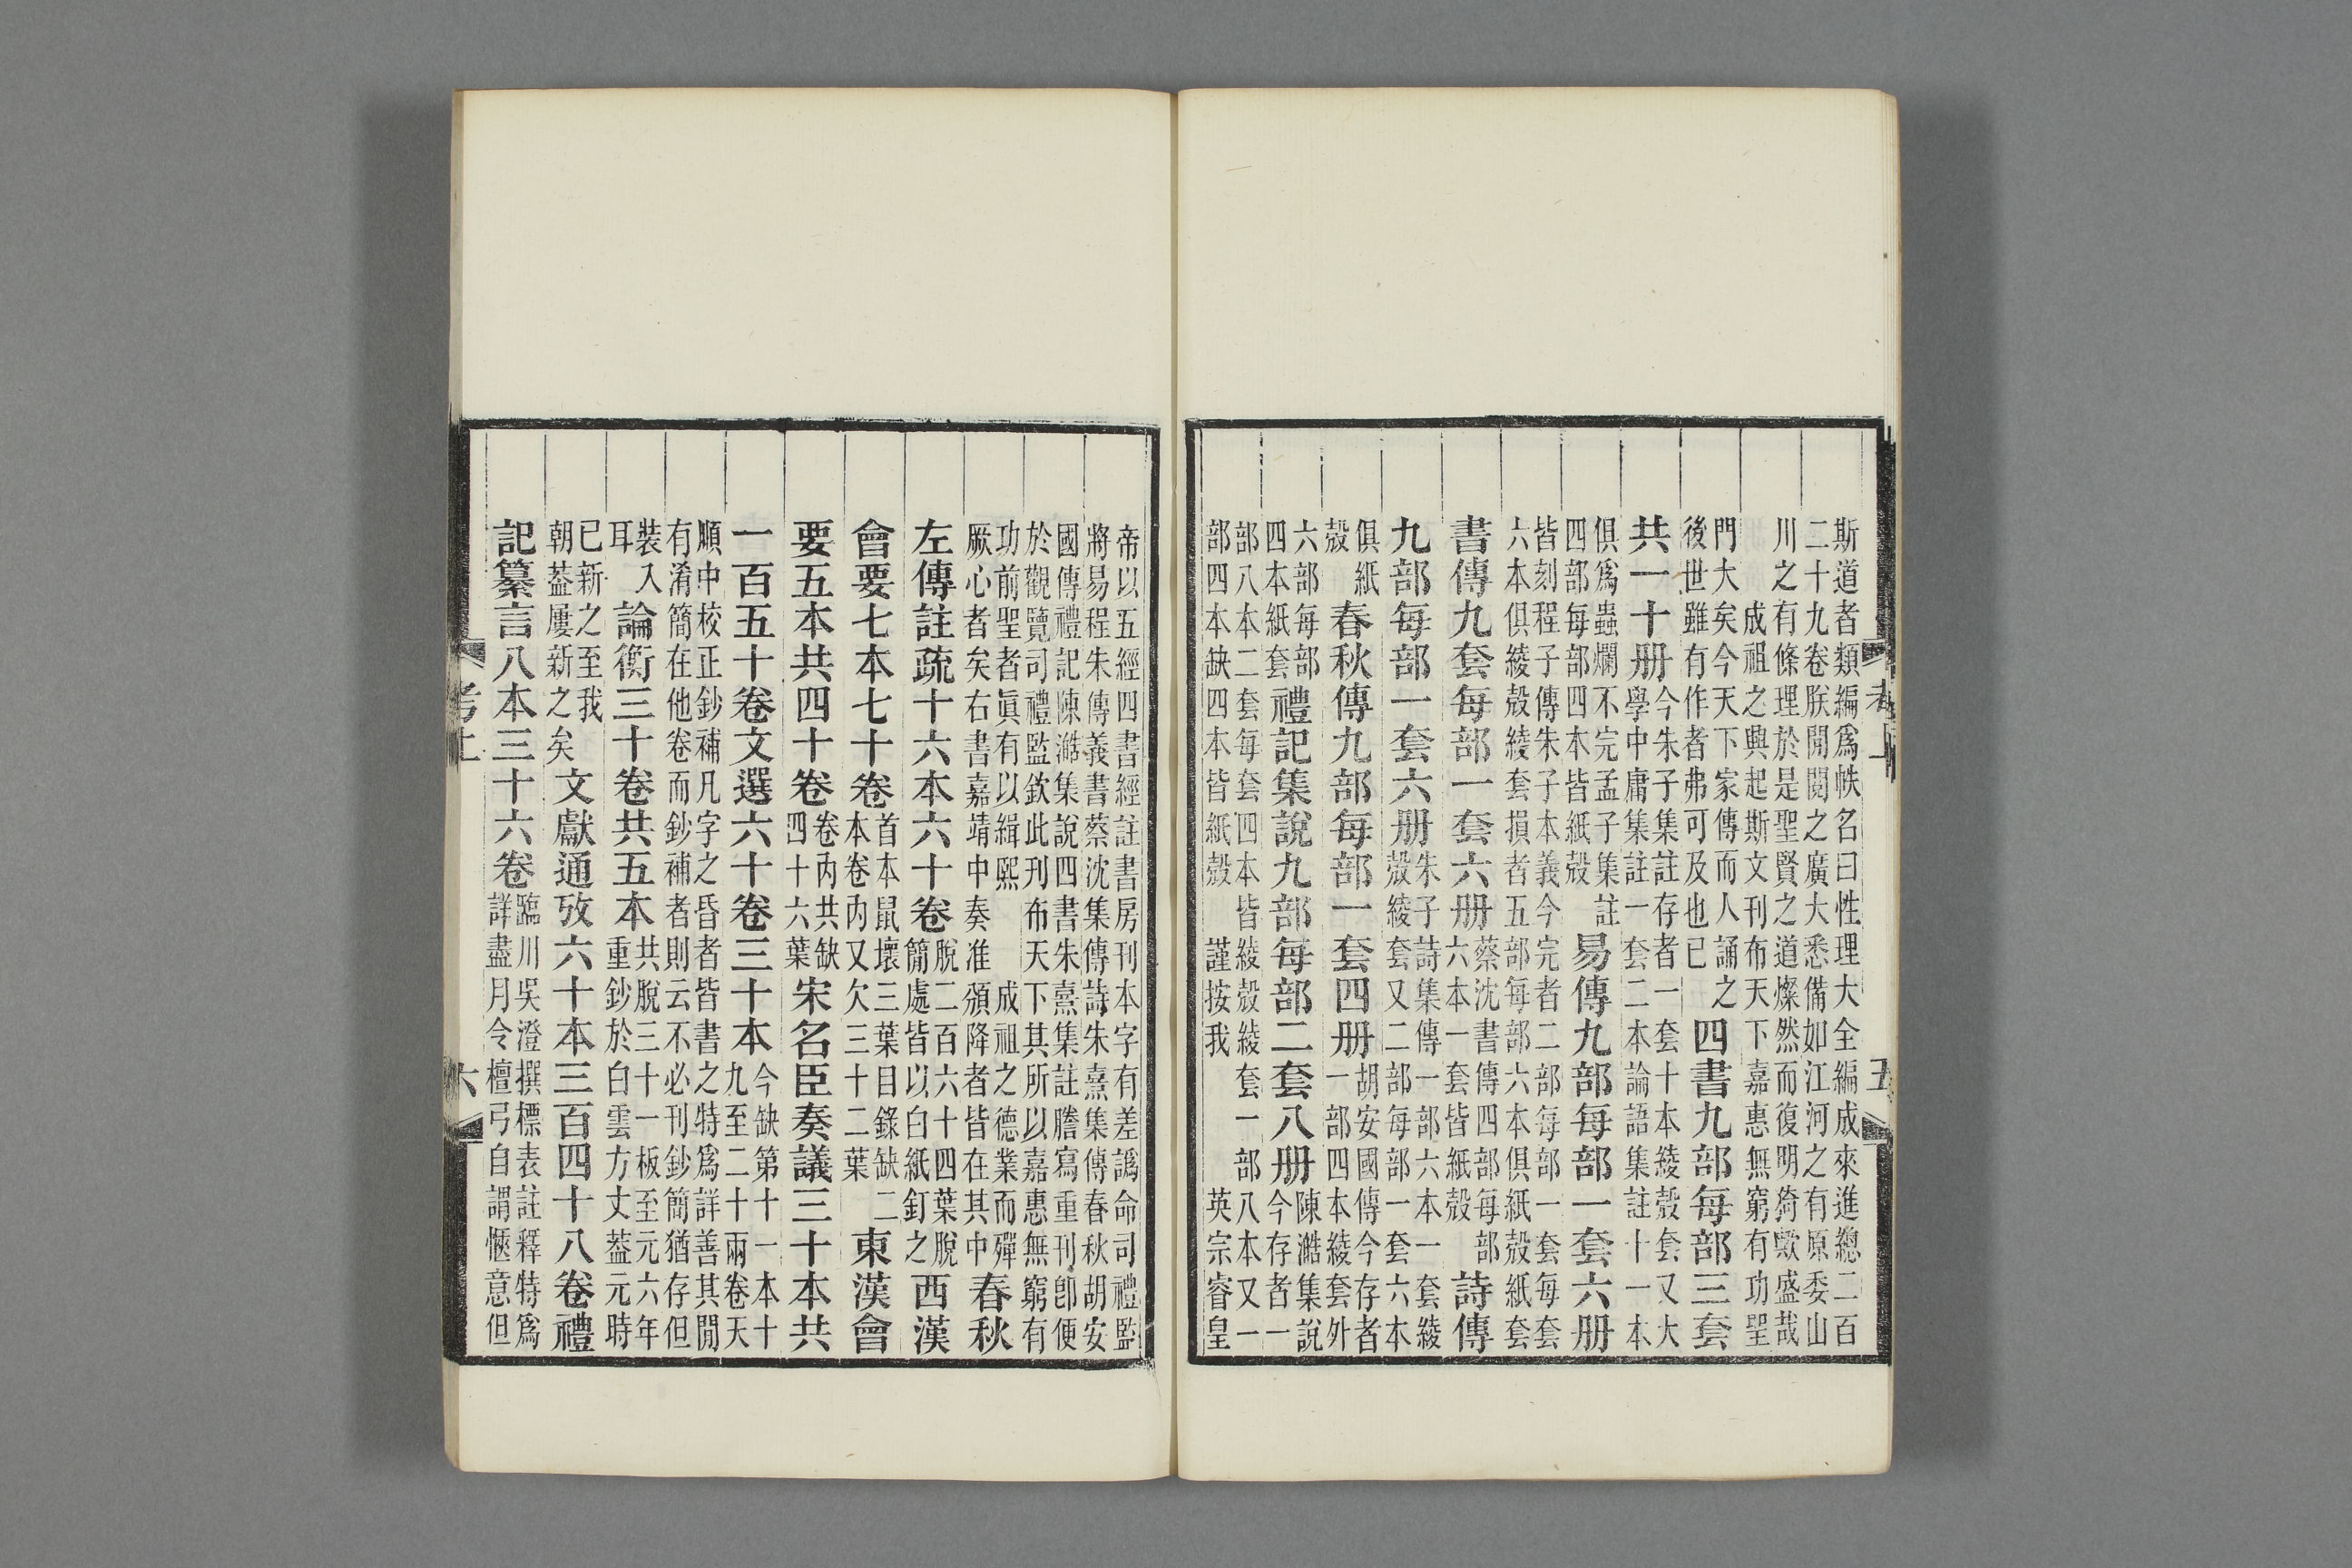 斯道者類編爲帙名曰性理大全編成來進總二百
二十九卷朕閒閱之廣大悉備如江河之有原委山
川之有條理於是聖賢之道燦然而復明猗歟盛哉
成祖之興起斯文刊布天下嘉惠無窮有功聖
門大矣今天下家傳而人誦之
後世雖有作者弗可及也已
四書九部每部三套
共一十册
今朱子集註存者一套十本綾殼套又大
學中庸集註一套二本論語集註十一本
俱爲蟲爛不完孟子集註
四部每部四本皆紙殼
易傳九部每部一套六册
皆刻程子傳朱子本義今完者二部每部一套每套
六本俱綾殼綾套損者五部每部六本俱紙殼紙套
書傳九套每部一套六册
蔡沈書傳四部每部
六本一套皆紙殼
詩傳
九部每部一套六册
朱子詩集傳一部六本一套綾
殼綾套又二部每部一套六本
俱紙
殼
春秋傳九部每部一套四册
胡安國傳今存者
一部四本綾套外
六部每部
四本紙套
禮記集說九部每部二套八册
陳澔集說
今存者一
部八本二套每套四本皆綾殼綾套一部八本又一
部四本缺四本皆紙殼
謹按我
英宗睿皇
考上
五
帝以五經四書經註書房刊本字有差譌命司禮監
將易程朱傳義書蔡沈集傳詩朱熹集傳春秋胡安
國傳禮記陳澔集說四書朱熹集註謄寫重刊卽便
於觀覽司禮監欽此刊布天下其所以嘉惠無窮有
功前聖者眞有以緝熙
成祖之德業而殫
厥心者矣右書嘉靖中奏准頒降者皆在其中
春秋
左傳註疏十六本六十卷
脫二百六十四葉脫
簡處皆以白紙釘之
西漢
會要七本七十卷
首本鼠壞三葉目錄缺二
本卷內又欠三十二葉
東漢會
要五本共四十卷
卷內共缺
四十六葉
宋名臣奏議三十本共
一百五十卷文選六十卷三十本
今缺第十一本十
九至二十兩卷天
順中校正鈔補凡字之昏者皆書之特爲詳善其閒
有淆簡在他卷而鈔補者則云不必刊鈔簡猶存但
裝入
耳
論衡三十卷共五本
共脫三十一板至元六年
重鈔於白雲方丈葢元時
已新之至我
朝葢屢新之矣
文獻通攷六十本三百四十八卷禮
記纂言八本三十六卷
臨川吳澄撰標表註釋特爲
詳盡月令檀弓自謂愜意但
考上
六